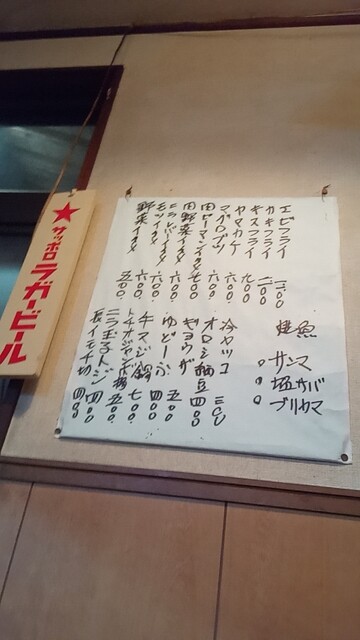 ★サッポロラガービール
エビフライ
カキフライ
キスフライ 九〇〇
ヤマカケ 六〇〇
マグロブツ 六〇〇
肉ピーマンイタメ 七〇〇
肉野菜イタメ 六〇〇
ニラレバイタメ 六〇〇
モツイタメ 六〇〇
野菜イタメ 五〇〇
焼魚
サンマ
塩サバ
ブリカマ
冷ヤッコ 三〇〇
オロシ納豆
ギョウザ 四〇〇
ゆどーふ
牛スジ鍋 七〇〇
トチオジャンボ揚 五〇〇
ニラ玉子トジ 四〇〇
長イモ千切 四〇〇